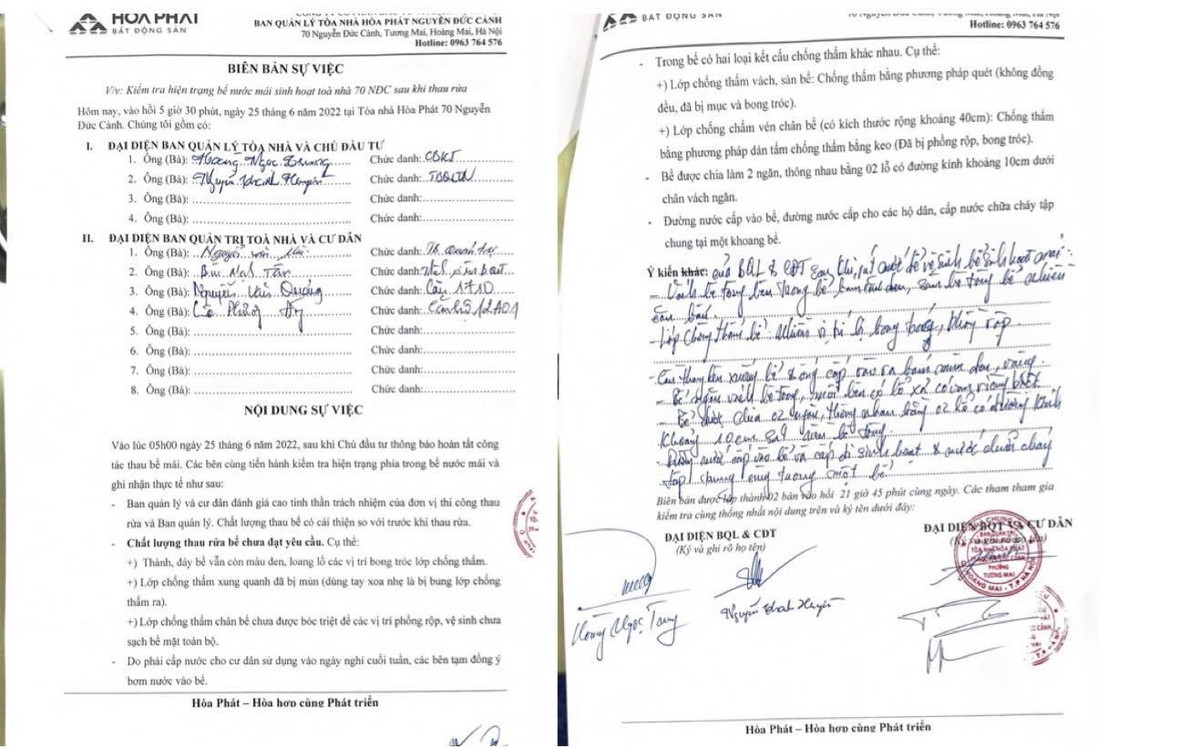 HÒA PHÁT
BẤT ĐỘNG SẢN
BAN QUẢN LÝ TÒA NHÀ HÒA PHÁT NGUYỄN ĐỨC CẢNH
70 Nguyễn Đức Cảnh, Tương Mai, Hoàng Mai, Hà Nội
Hotline: 0963 764 576
BIÊN BẢN SỰ VIỆC
V/v: Kiểm tra hiện trạng bể nước mái sinh hoạt toà nhà 70 NĐC sau khi thau rửa
Hôm nay, vào hồi 5 giờ 30 phút, ngày 25 tháng 6 năm 2022 tại Tòa nhà Hòa Phát 70 Nguyễn
Đức Cảnh. Chúng tôi gồm có:
I. ĐẠI DIỆN BAN QUẢN LÝ TÒA NHÀ VÀ CHỦ ĐẦU TƯ
1. Ông (Bà): Hoàng Ngọc Chức danh: CBKT
2. Ông (Bà): Nguyễn Khánh Huyền Chức danh:
3. Ông (Bà): Chức danh:
4. Ông (Bà): Chức danh:
II. ĐẠI DIỆN BAN QUẢN TRỊ TOÀ NHÀ VÀ CƯ DÂN
1. Ông (Bà): Nguyễn Chức danh:
2. Ông (Bà): Chức danh:
3. Ông (Bà): Nguyễn Chức danh: Căn 1710
4. Ông (Bà): Chức danh: Căn hộ 12A01
5. Ông (Bà): Chức danh:
6. Ông (Bà): Chức danh:
7. Ông (Bà): Chức danh:
8. Ông (Bà): Chức danh:
NỘI DUNG SỰ VIỆC
Vào lúc 05h00 ngày 25 tháng 6 năm 2022, sau khi Chủ đầu tư thông báo hoàn tất công
tác thau bể mái. Các bên cùng tiến hành kiểm tra hiện trạng phía trong bể nước mái và
ghi nhận thực tế như sau:
- Ban quản lý và cư dân đánh giá cao tinh thần trách nhiệm của đơn vị thi công thau
rửa và Ban quản lý. Chất lượng thau bể có cải thiện so với trước khi thau rửa.
- Chất lượng thau rửa bể chưa đạt yêu cầu. Cụ thể:
+) Thành, đáy bể vẫn còn màu đen, loang lổ các vị trí bong tróc lớp chống thấm.
+) Lớp chống thấm xung quanh đã bị mủn (dùng tay xoa nhẹ là bị bung lớp chống
thấm ra).
+) Lớp chống thấm chân bể chưa được bóc triệt để các vị trí phồng rộp, vệ sinh chưa
sạch bề mặt toàn bộ.
- Do phải cấp nước cho cư dân sử dụng vào ngày nghỉ cuối tuần, các bên tạm đồng ý
bơm nước vào bể.
Hòa Phát – Hòa hợp cùng Phát triển
BẤT ĐỘNG SẢN
70 Nguyễn Đức Cảnh, Tương Mai, Hoàng Mai, Hà Nội
Hotline: 0963 764 576
- Trong bể có hai loại kết cấu chống thấm khác nhau. Cụ thể:
+) Lớp chống thấm vách, sàn bể: Chống thấm bằng phương pháp quét (không đồng
đều, đã bị mục và bong tróc).
+) Lớp chống chấm vén chân bể (có kích thước rộng khoảng 40cm): Chống thấm
bằng phương pháp dán tấm chống thấm bằng keo (Đã bị phồng rộp, bong tróc).
- Bể được chia làm 2 ngăn, thông nhau bằng 02 lỗ có đường kính khoảng 10cm dưới
chân vách ngăn.
- Đường nước cấp vào bể, đường nước cấp cho các hộ dân, cấp nước chữa cháy tập
chung tại một khoang bể.
Ý kiến khác: của BQL & CĐT sau khi bể sinh hoạt mái:
- Vách bê tông bên trong bể bám màu đen, sàn bê tông bể nhiều
cặn bẩn.
- Lớp chống thấm bể nhiều vị trí bị bong tróc, phồng rộp.
- Cầu thang lên xuống bể & ống cấp vào ra bám màu đen, vàng.
- Bể ngăn vách bê tông, mỗi bên có lỗ xả riêng biệt.
- Bể được chia 02 ngăn, thông nhau bằng 02 lỗ có đường kính
khoảng 10cm sát bê tông.
- Đường nước cấp vào bể và cấp đi sinh hoạt & nước chữa cháy
tập chung cùng trong một bể.
Biên bản được lập thành 02 bản vào hồi 21 giờ 45 phút cùng ngày. Các tham tham gia
kiểm tra cùng thống nhất nội dung trên và ký tên dưới đây:
ĐẠI DIỆN BQL & CĐT
(Ký và ghi rõ họ tên)
ĐẠI DIỆN BQT VÀ CƯ DÂN
Nguyễn Khánh Huyền
Hoàng Ngọc
Hòa Phát – Hòa hợp cùng Phát triển